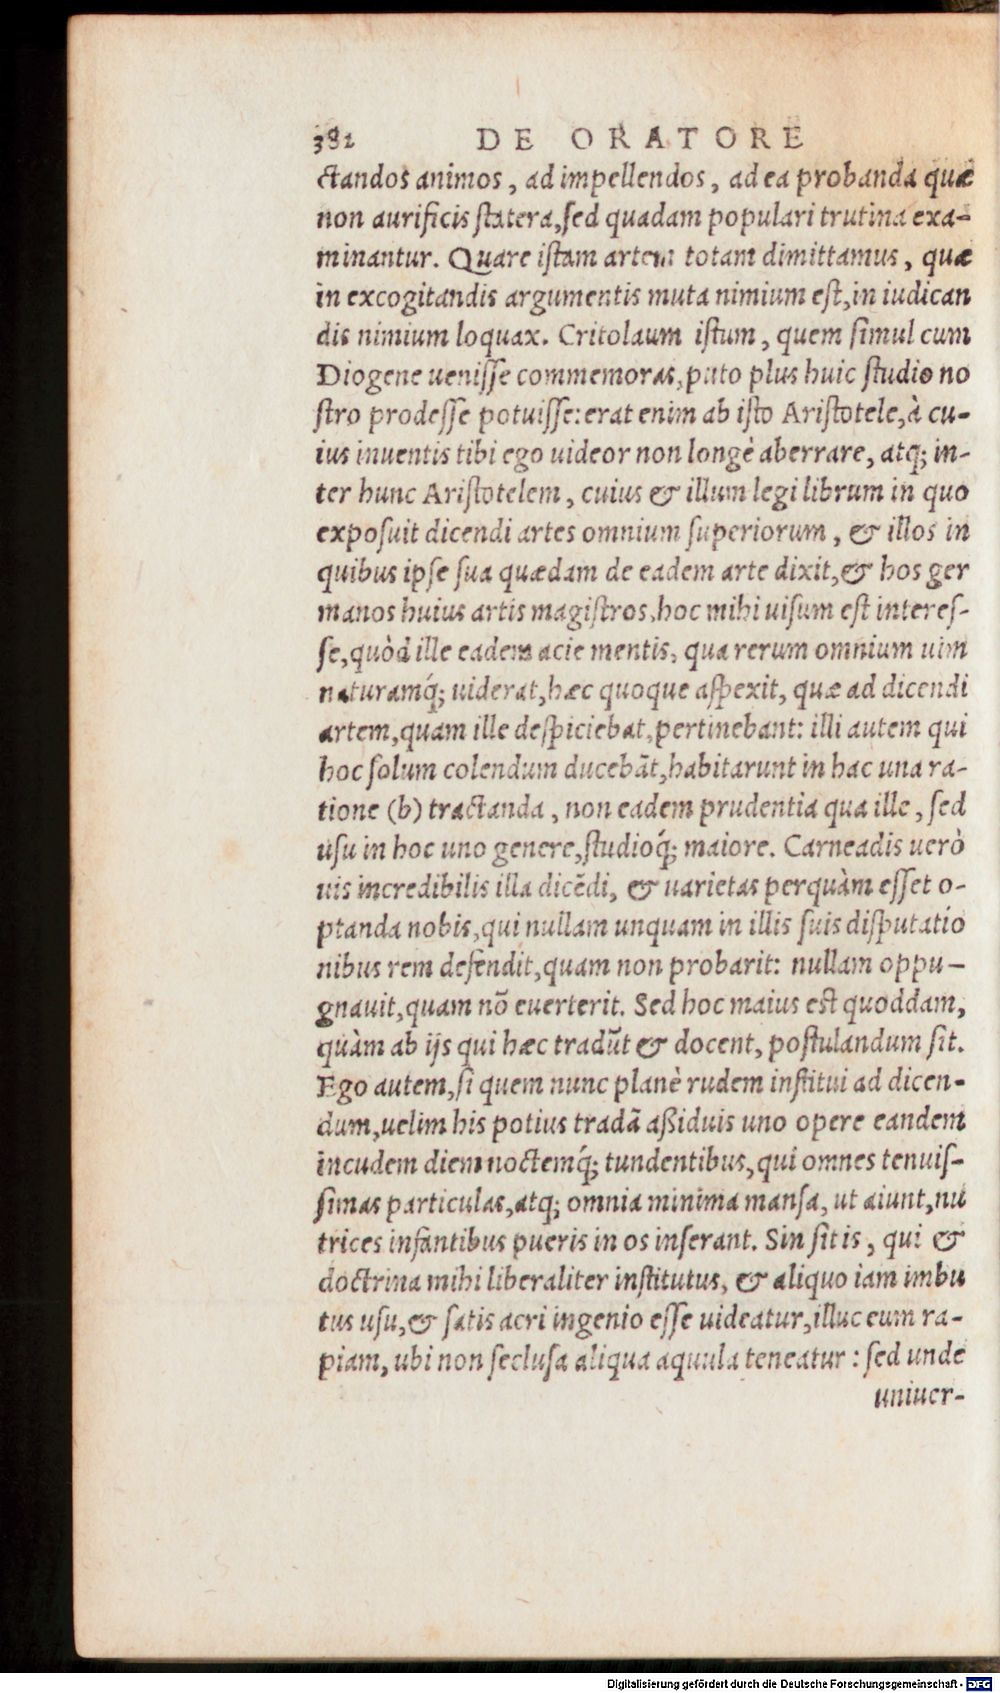 382 DE ORATORE
ctandos animos, ad impellendos, ad ea probanda quæ
non aurificis statera, sed quadam populari trutina exa-
minantur. Quare istam artem totam dimittamus, quæ
in excogitandis argumentis muta nimium est, in iudican
dis nimium loquax. Critolaum istum, quem simul cum
Diogene uenisse commemoras, puto plus huic studio no
stro prodesse potuisse: erat enim ab isto Aristotele, à cu-
ius inuentis tibi ego uideor non longè aberrare, atq; in-
ter hunc Aristotelem, cuius & illum legi librum in quo
exposuit dicendi artes omnium superiorum, & illos in
quibus ipse sua quædam de eadem arte dixit, & hos ger
manos huius artis magistros, hoc mihi uisum est interes-
se, quòd ille eadem acie mentis, qua rerum omnium uim
naturamq́; uiderat, hæc quoque aspexit, quæ ad dicendi
artem, quam ille despiciebat, pertinebant: illi autem qui
hoc solum colendum ducebāt, habitarunt in hac una ra-
tione (b) tractanda, non eadem prudentia qua ille, sed
usu in hoc uno genere, studioq́; maiore. Carneadis uerò
uis incredibilis illa dicēdi, & uarietas perquàm esset o-
ptanda nobis, qui nullam unquam in illis suis disputatio
nibus rem defendit, quam non probarit: nullam oppu-
gnauit, quam nō euerterit. Sed hoc maius est quoddam,
quàm ab ijs qui hæc tradūt & docent, postulandum sit.
Ego autem, si quem nunc planè rudem institui ad dicen-
dum, uelim his potius tradā aßiduis uno opere eandem
incudem diem noctemq́; tundentibus, qui omnes tenuis-
simas particulas, atq; omnia minima mansa, ut aiunt, nu
trices infantibus pueris in os inserant. Sin sit is, qui &
doctrina mihi liberaliter institutus, & aliquo iam imbu
tus usu, & satis acri ingenio esse uideatur, illuc eum ra-
piam, ubi non seclusa aliqua aquula teneatur: sed unde
uniuer-
Digitalisierung gefördert durch die Deutsche Forschungsgemeinschaft - DFG